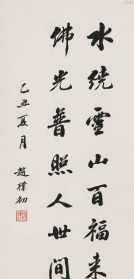 水绕灵山百福来
佛光普照人世间
乙丑夏月
赵朴初